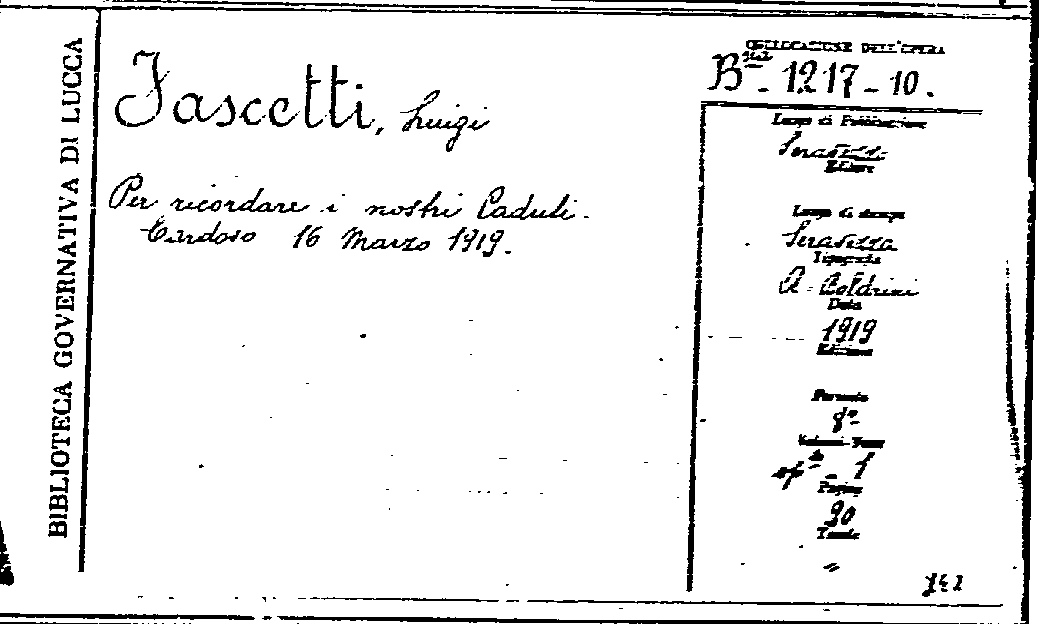 BIBLIOTECA GOVERNATIVA DI LUCCA
Fascetti, Luigi
Per ricordare i nostri Caduti.
Cardoso 16 Marzo 1919.
COLLOCAZIONE DELL'OPERA
B.ta 142 - 1217 - 10.
Luogo di Pubblicazione
Seravezza
Editore
Luogo di stampa
Seravezza
Tipografia
A. Boldrini
Data
1919
Edizione
Formato
8°
Volumi - Tomi
op. - 1
Pagine
20
Tavole
"